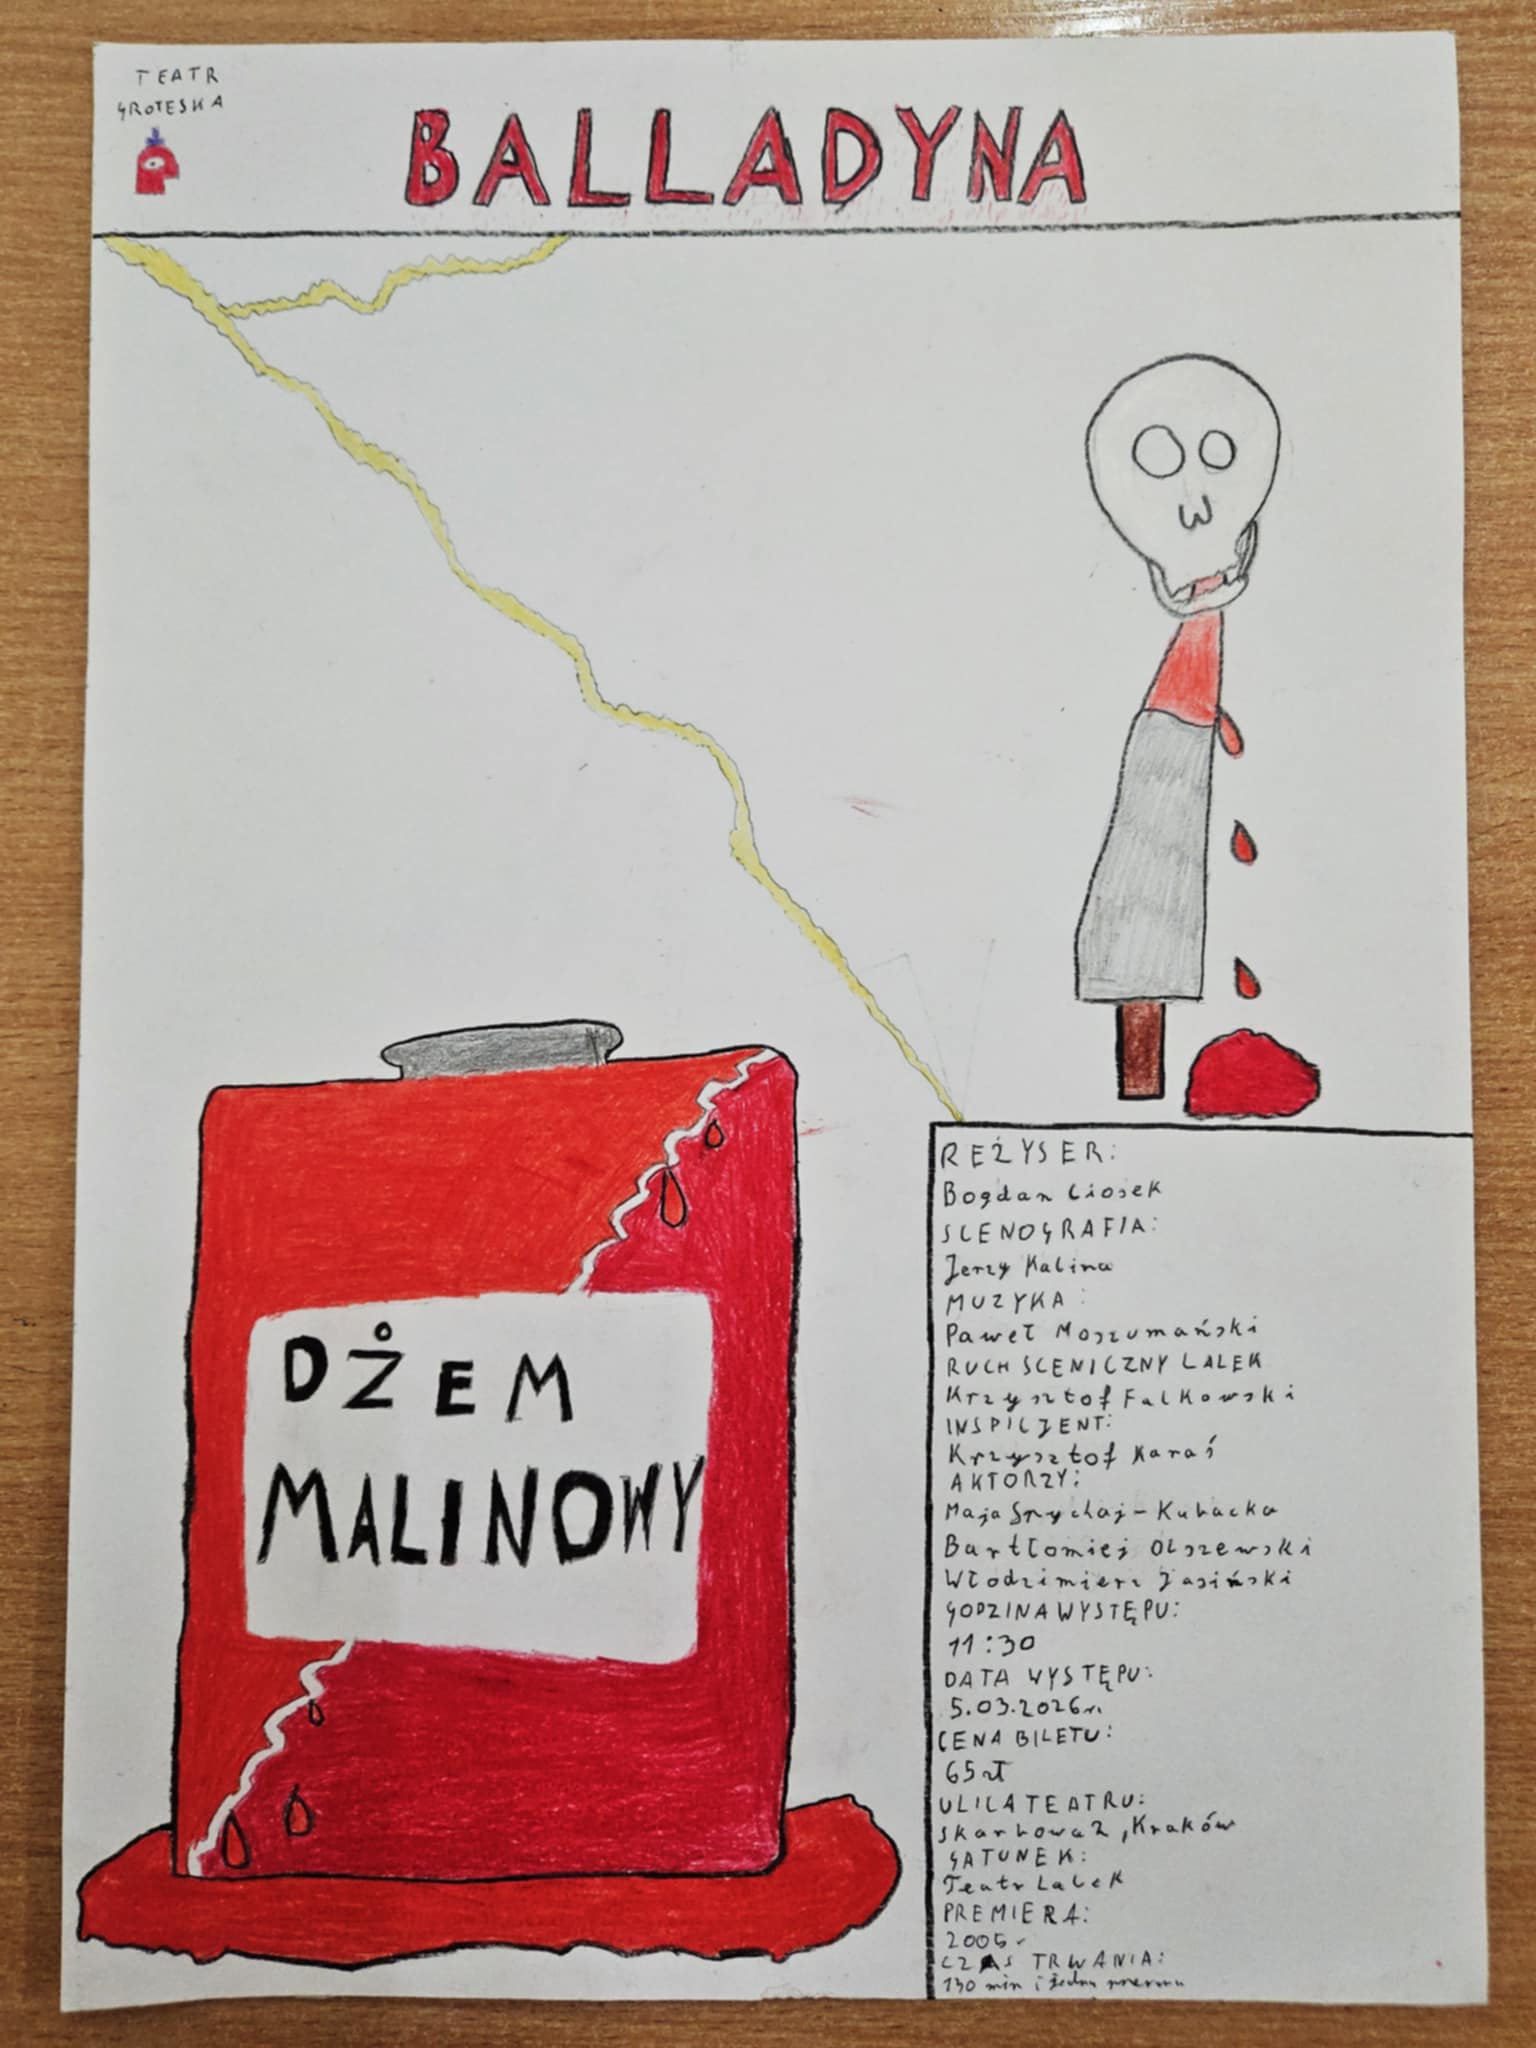 TEATR
GROTESKA
BALLADYNA
DŻEM
MALINOWY
REŻYSER:
Bogdan Ciosek
SCENOGRAFIA:
Jerzy Kalina
MUZYKA:
Paweł Moszumański
RUCH SCENICZNY LALEK
Krzysztof Falkowski
INSPICJENT:
Krzysztof Karaś
AKTORZY:
Maja Spychaj-Kubacka
Bartłomiej Olszewski
Włodzimierz Jasiński
GODZINA WYSTĘPU:
11:30
DATA WYSTĘPU:
5.03.2026r.
CENA BILETU:
65 zł
ULICA TEATRU:
Skarbowa 2, Kraków
GATUNEK:
Teatr Lalek
PREMIERA:
2005r
CZAS TRWANIA:
130 min i jedna przerwa